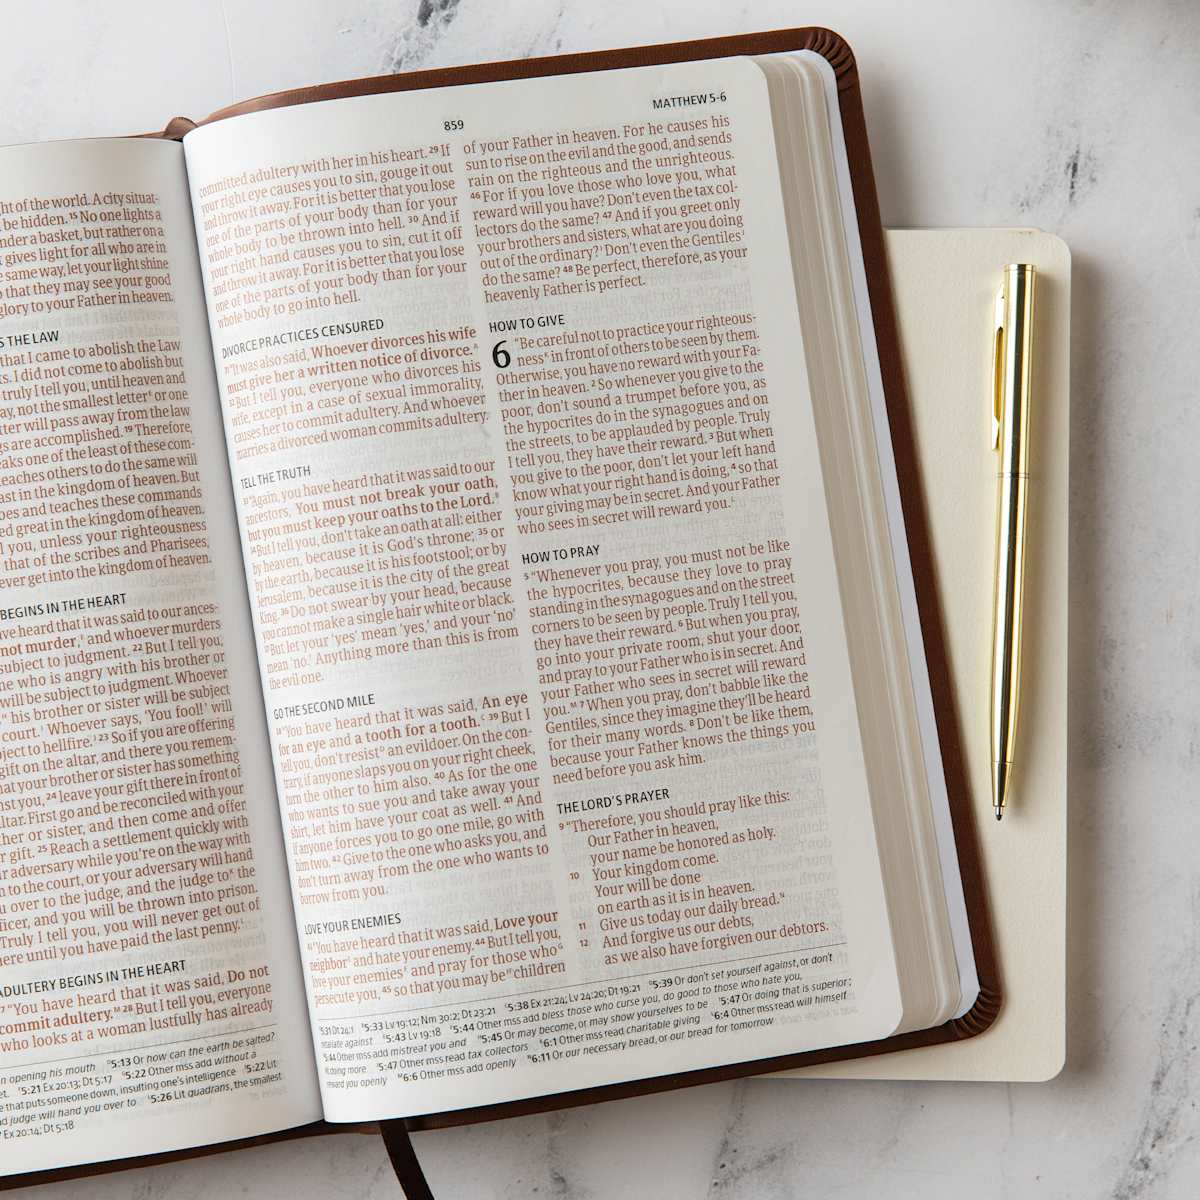 ht of the world. A city situat-
be hidden. 15 No one lights a
nder a basket, but rather on a
t gives light for all who are in
e same way, let your light shine
o that they may see your good
glory to your Father in heaven.
S THE LAW
that I came to abolish the Law
ts. I did not come to abolish but
truly I tell you, until heaven and
ay, not the smallest letter or one
tter will pass away from the law
gs are accomplished. 19 Therefore,
eaks one of the least of these com-
teaches others to do the same will
ast in the kingdom of heaven. But
oes and teaches these commands
ed great in the kingdom of heaven.
l you, unless your righteousness
that of the scribes and Pharisees,
ever get into the kingdom of heaven.
BEGINS IN THE HEART
ve heard that it was said to our ances-
not murder, and whoever murders
subject to judgment. 22 But I tell you,
ne who is angry with his brother or
will be subject to judgment. Whoever
" his brother or sister will be subject
court. Whoever says, 'You fool!' will
ject to hellfire. 23 So if you are offering
gift on the altar, and there you remem-
at your brother or sister has something
nst you, 24 leave your gift there in front of
ltar. First go and be reconciled with your
her or sister, and then come and offer
r gift. 25 Reach a settlement quickly with
r adversary while you're on the way with
n to the court, or your adversary will hand
u over to the judge, and the judge to the
ficer, and you will be thrown into prison.
Truly I tell you, you will never get out of
ere until you have paid the last penny.
ADULTERY BEGINS IN THE HEART
7 "You have heard that it was said, Do not
commit adultery. 28 But I tell you, everyone
who looks at a woman lustfully has already
n opening his mouth 5:13 Or how can the earth be salted?
et. 5:21 Ex 20:13; Dt 5:17 5:22 Other mss add without a
e that puts someone down, insulting one's intelligence 5:22 Lit
nd judge will hand you over to 5:26 Lit quadrans, the smallest
Ex 20:14; Dt 5:18
859
MATTHEW 5-6
committed adultery with her in his heart. 29 If
your right eye causes you to sin, gouge it out
and throw it away. For it is better that you lose
one of the parts of your body than for your
whole body to be thrown into hell. 30 And if
your right hand causes you to sin, cut it off
and throw it away. For it is better that you lose
one of the parts of your body than for your
whole body to go into hell.
DIVORCE PRACTICES CENSURED
31 "It was also said, Whoever divorces his wife
must give her a written notice of divorce.
32 But I tell you, everyone who divorces his
wife, except in a case of sexual immorality,
causes her to commit adultery. And whoever
marries a divorced woman commits adultery.
TELL THE TRUTH
33 "Again, you have heard that it was said to our
ancestors, You must not break your oath,
but you must keep your oaths to the Lord.
34 But I tell you, don't take an oath at all: either
by heaven, because it is God's throne; 35 or
by the earth, because it is his footstool; or by
Jerusalem, because it is the city of the great
King. 36 Do not swear by your head, because
you cannot make a single hair white or black.
37 But let your 'yes' mean 'yes,' and your 'no'
mean 'no.' Anything more than this is from
the evil one.
GO THE SECOND MILE
38 "You have heard that it was said, An eye
for an eye and a tooth for a tooth. 39 But I
tell you, don't resist an evildoer. On the con-
trary, if anyone slaps you on your right cheek,
turn the other to him also. 40 As for the one
who wants to sue you and take away your
shirt, let him have your coat as well. 41 And
if anyone forces you to go one mile, go with
him two. 42 Give to the one who asks you, and
don't turn away from the one who wants to
borrow from you.
LOVE YOUR ENEMIES
43 "You have heard that it was said, Love your
neighbor and hate your enemy. 44 But I tell you,
love your enemies and pray for those who
persecute you, 45 so that you may be children
of your Father in heaven. For he causes his
sun to rise on the evil and the good, and sends
rain on the righteous and the unrighteous.
46 For if you love those who love you, what
reward will you have? Don't even the tax col-
lectors do the same? 47 And if you greet only
your brothers and sisters, what are you doing
out of the ordinary? Don't even the Gentiles
do the same? 48 Be perfect, therefore, as your
heavenly Father is perfect.
HOW TO GIVE
6 "Be careful not to practice your righteous-
ness in front of others to be seen by them.
Otherwise, you have no reward with your Fa-
ther in heaven. 2 So whenever you give to the
poor, don't sound a trumpet before you, as
the hypocrites do in the synagogues and on
the streets, to be applauded by people. Truly
I tell you, they have their reward. 3 But when
you give to the poor, don't let your left hand
know what your right hand is doing, 4 so that
your giving may be in secret. And your Father
who sees in secret will reward you.
HOW TO PRAY
5 "Whenever you pray, you must not be like
the hypocrites, because they love to pray
standing in the synagogues and on the street
corners to be seen by people. Truly I tell you,
they have their reward. 6 But when you pray,
go into your private room, shut your door,
and pray to your Father who is in secret. And
your Father who sees in secret will reward
you. 7 When you pray, don't babble like the
Gentiles, since they imagine they'll be heard
for their many words. 8 Don't be like them,
because your Father knows the things you
need before you ask him.
THE LORD'S PRAYER
9 "Therefore, you should pray like this:
Our Father in heaven,
your name be honored as holy.
10 Your kingdom come.
Your will be done
on earth as it is in heaven.
11 Give us today our daily bread.
12 And forgive us our debts,
as we also have forgiven our debtors.
5:31 Dt 24:1 5:33 Lv 19:12; Nm 30:2; Dt 23:21 5:38 Ex 21:24; Lv 24:20; Dt 19:21 5:39 Or don't set yourself against, or don't
retaliate against 5:43 Lv 19:18 5:44 Other mss add bless those who curse you, do good to those who hate you,
5:44 Other mss add mistreat you and 5:45 Or may become, or may show yourselves to be 5:47 Or doing that is superior;
lit doing more 5:47 Other mss read tax collectors 6:1 Other mss read charitable giving 6:4 Other mss read will himself
reward you openly 6:6 Other mss add openly 6:11 Or our necessary bread, or our bread for tomorrow